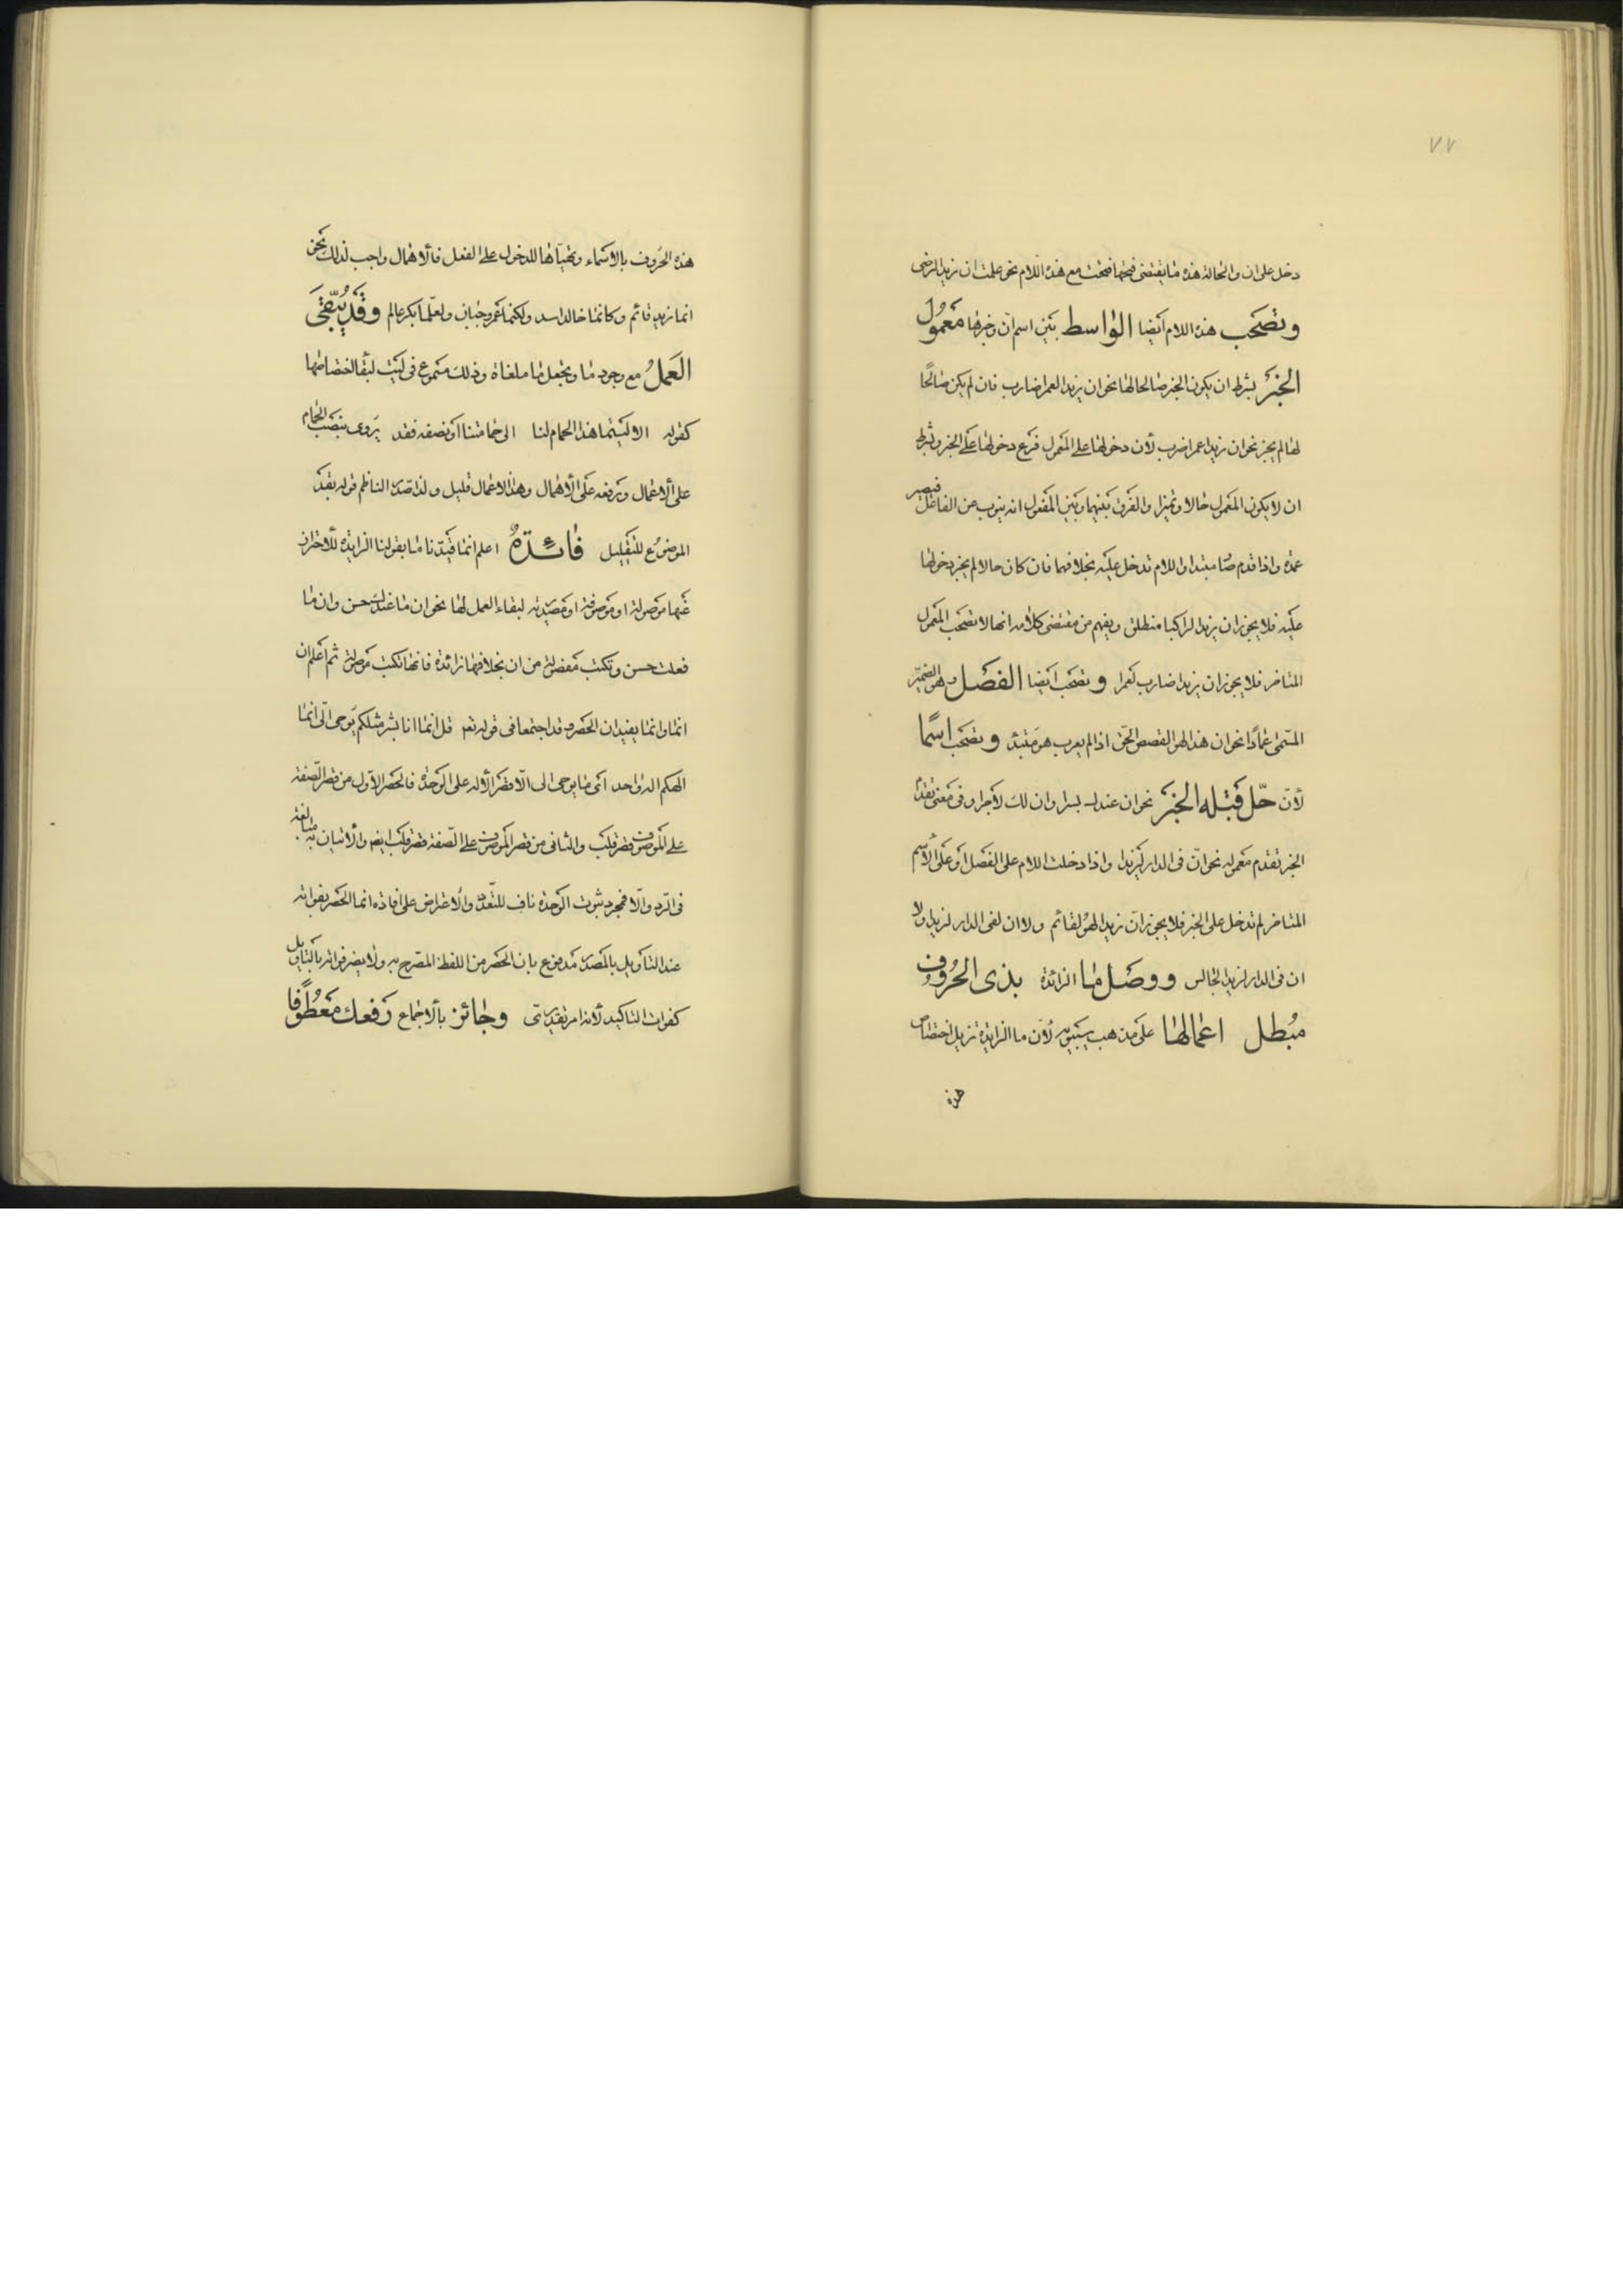 ٧٧
دخل على ان والحالة هذه ما يقتضى فتحها فتحت مع هذه اللام نحو علمت ان زيدا لرضى
وتصحب هذه اللام ايضا الواسط بين اسم ان وخبرها معمول
الخبر بشرط ان يكون الخبر صالحا لها نحو ان زيدا لعمرا ضارب فان لم يكن صالحا
لها لم يجز نحو ان زيدا عمرا ضرب لأن دخولها على المعمول فرع دخولها على الخبر وشرط
ان لا يكون المعمول حالا وتميزا والفرق بينهما وبين المفعول انه ينوب عن الفاعل فيصير
عمدة واذا قدم صار مبتدا واللام تدخل عليه بخلافهما فان كان حالا لم يجز دخولها
عليه فلا يجوز ان زيدا لراكبا منطلق ويفهم من مقتضى كلامه انها لا تصحب المعمول
المتاخر فلا يجوز ان زيدا ضارب لعمرا وتصحب ايضا الفصل وهو الضمير
المسمى عمادا نحو ان هذا لهو القصص الحق اذا لم يعرب هو مبتدأ وتصحب اسما
لأن حل قبله الخبر نحو ان عندك لبسرا وان لك لأجرا وفى معنى تقدم
الخبر تقدم معموله نحو ان فى الدار لزيدا واذا دخلت اللام على الفصل او على الاسم
المتاخر لم تدخل على الخبر فلا يجوز ان زيدا لهو لقائم ولا ان لفى الدار لزيدا ولا
ان فى الدار لزيدا لجالس ووصل ما الزائدة بذى الحروف
مبطل اعمالها على مذهب سيبويه لأن ما الزايدة تزيل اختصاص
هذه
هذه الحروف بالاسماء وتهيأها للدخول على الفعل فالاهمال واجب لذلك نحو
انما زيد قائم وكانما خالد اسد ولكنما عمرو جبان ولعلما بكر عالم وقد يبقى
العمل مع وجود ما وتجعل ما ملغاة وذلك مسموع فى ليت لبقا اختصاصها
كقوله الا ليتما هذا الحمام لنا الى حمامتنا او نصفه فقد يروى بنصب الحمام
على الاعمال ورفعه على الاهمال وهذا الاعمال قليل ولذا صدر الناظم قوله بقد
الموضوع للتقليل فائدة اعلم انما قيدنا ما بقولنا الزايدة للاحتراز
عنها موصولة او موصوفة او مصدرية لبقاء العمل لها نحو ان ما عندك حسن وان ما
فعلت حسن وتكتب مفصولة من ان بخلافها زائدة فانها تكتب موصولة ثم اعلم ان
انما وانما يفيدان الحصر وقد اجتمعا فى قوله تعم قل انما انا بشر مثلكم يوحى الى انما
الهكم اله واحد اى ما يوحى الى الا قصر الأله على الوحدة فالحصر الاول من قصر الصفة
على الموصوف قصر قلب والثانى من قصر الموصوف على الصفة قصر قلب ايضا والاتيان به مبالغة
فى الرد والا فمجرد ثبوت الوحدة ناف للتعدد والاعتراض على افاده انما الحصر بفواته
عند التاويل بالمصدر مدفوع بان الحصر من اللفظ المصرح به ولا يضر فواته بالتاويل
كفوات التاكيد لأنه امر تقديرى وجائز بالاجماع رفعك معطوفا